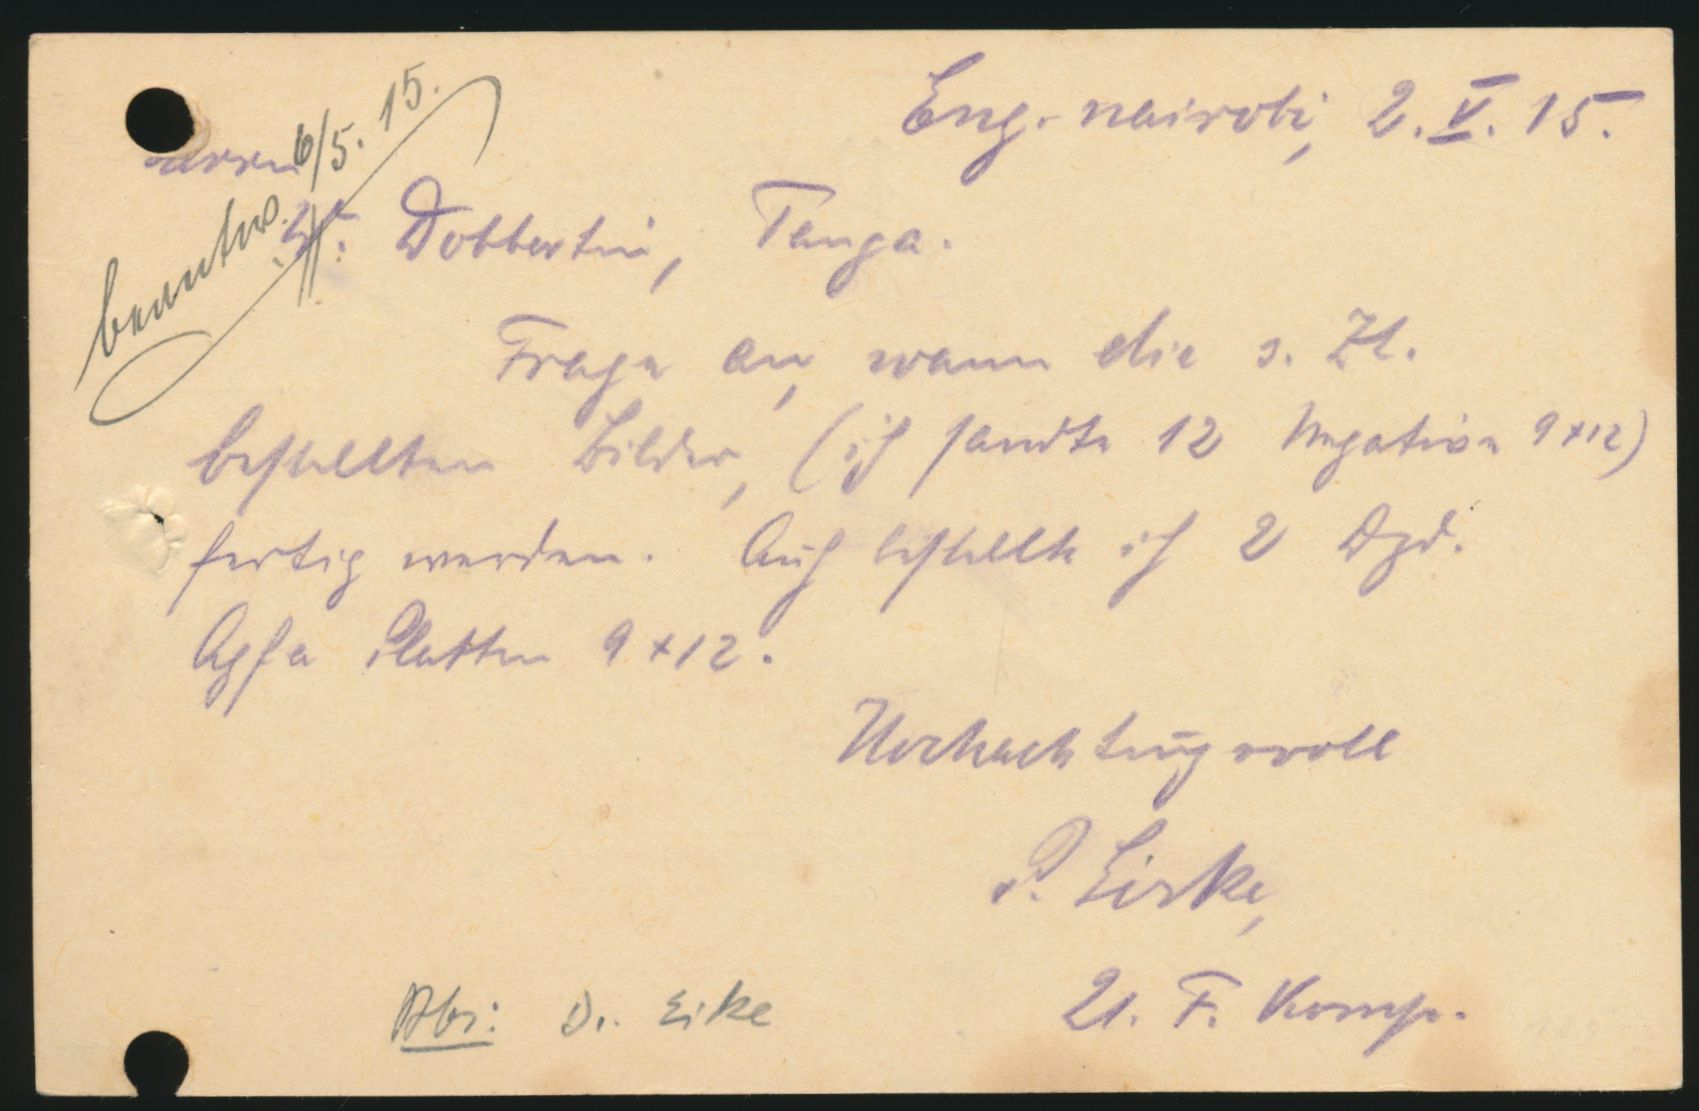 Eng-Nairobi, 2.V.15.
beantw. 6/5. 15.
Herrn
W. Dobbertin, Tanga.
Frage an, wann die s. Zt.
bestellten Bilder, (ich sandte 12 Negative 9x12)
fertig werden. Auch bestellte ich 2 Dzd.
Agfa Platten 9x12.
Hochachtungsvoll
21. F. Komp.
Abs: D. Eike